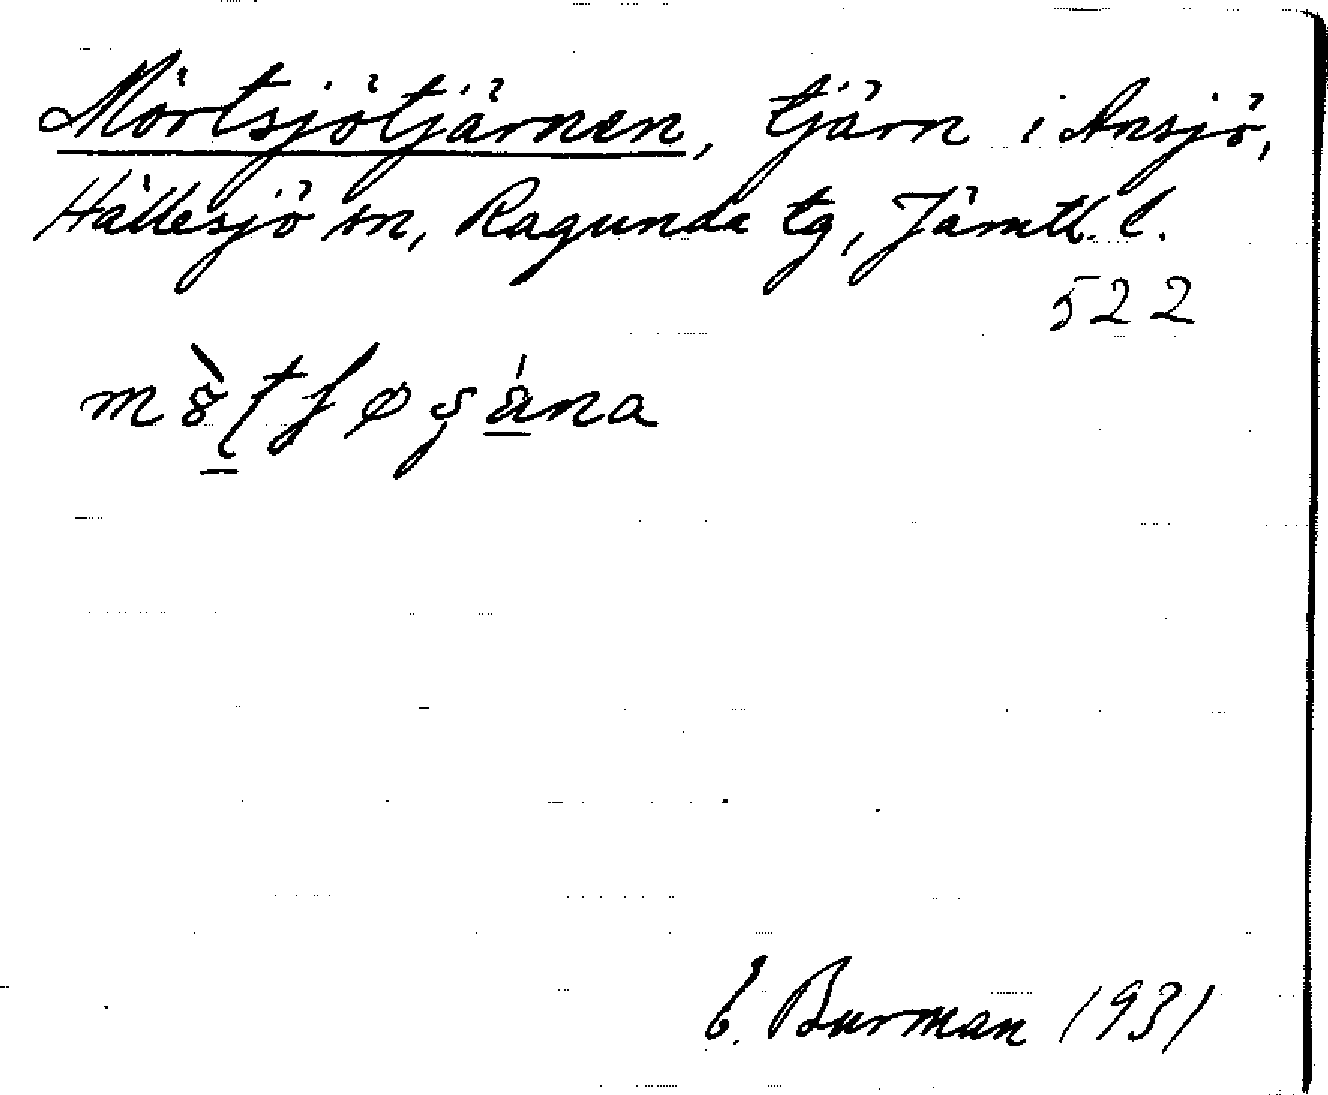 Mörtsjötjärnen, tjärn i Ansjö,
Hällesjö sn, Ragunda tg, Jämtl. l.
522
E. Burman 1931